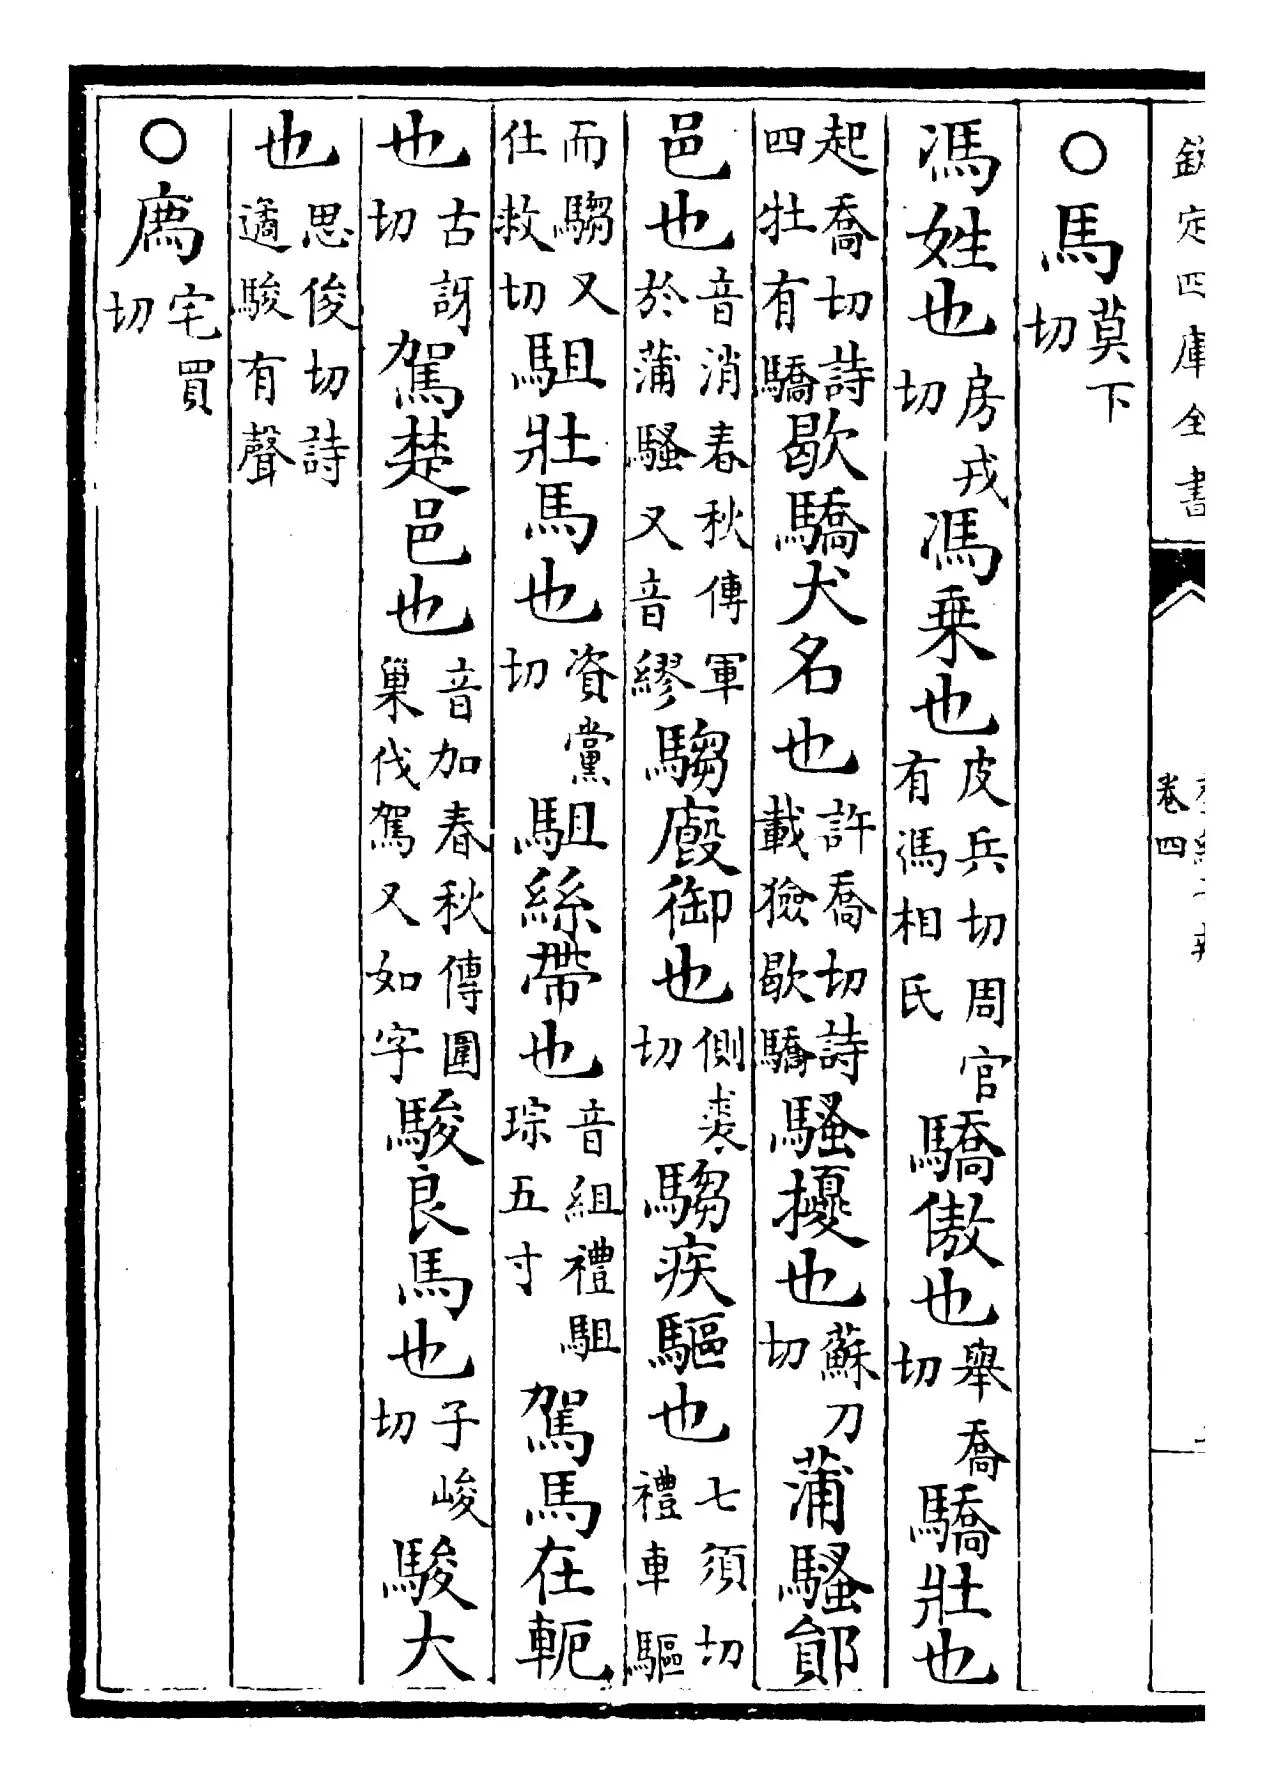 欽定四庫全書
卷四
○馬莫下切
馮姓也房戎切馮乗也皮兵切周官有馮相氏驕傲也舉喬切驕壯也
起喬切詩四牡有驕歇驕犬名也許喬切詩載獫歇驕騷擾也蘇刀切蒲騷鄖
邑也音消春秋傳軍於蒲騷又音繆騶廏御也側裘切騶疾驅也七須切禮車驅
而騶又仕救切駔壯馬也資黨切駔絲帶也音組禮駔琮五寸駕馬在軛
也古訝切駕楚邑也音加春秋傳圍巢伐駕又如字駿良馬也子峻切駿大
也思俊切詩遹駿有聲
○廌宅買切